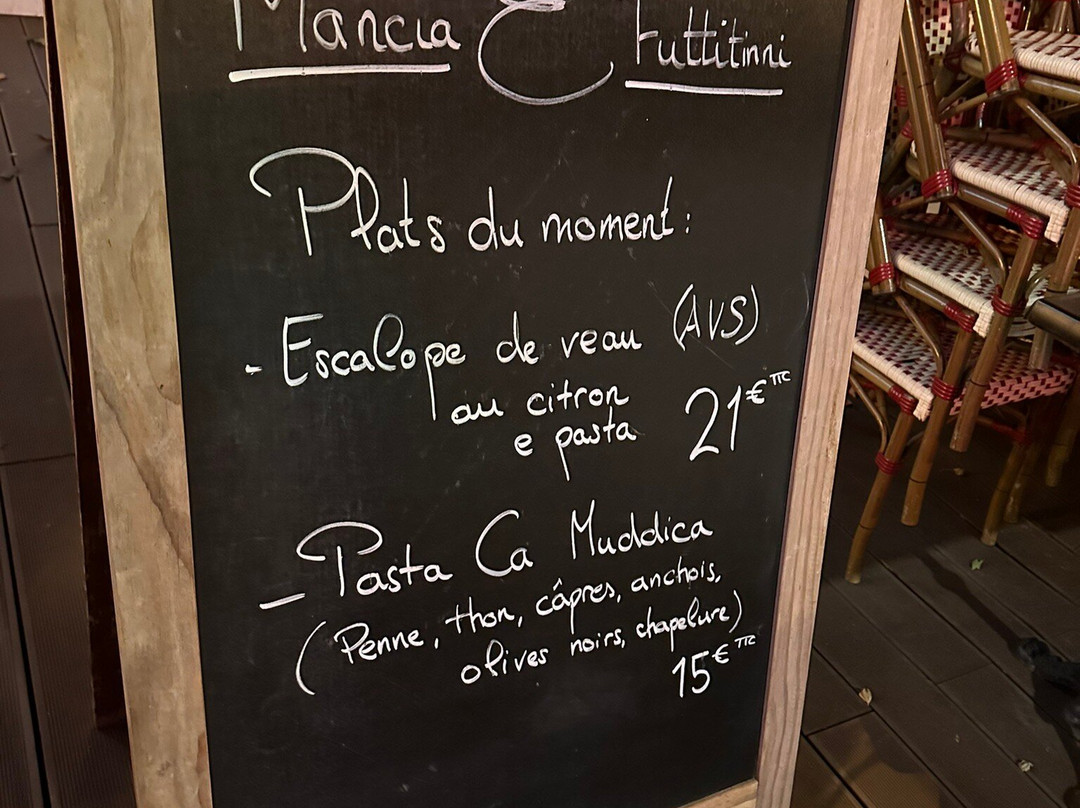 Mancia E Futtitinni
Plats du moment :
- Escalope de veau (AVS)
au citron
e pasta 21€ TTC
- Pasta Ca Muddica
(Penne, thon, câpres, anchois,
olives noirs, chapelure)
15€ TTC